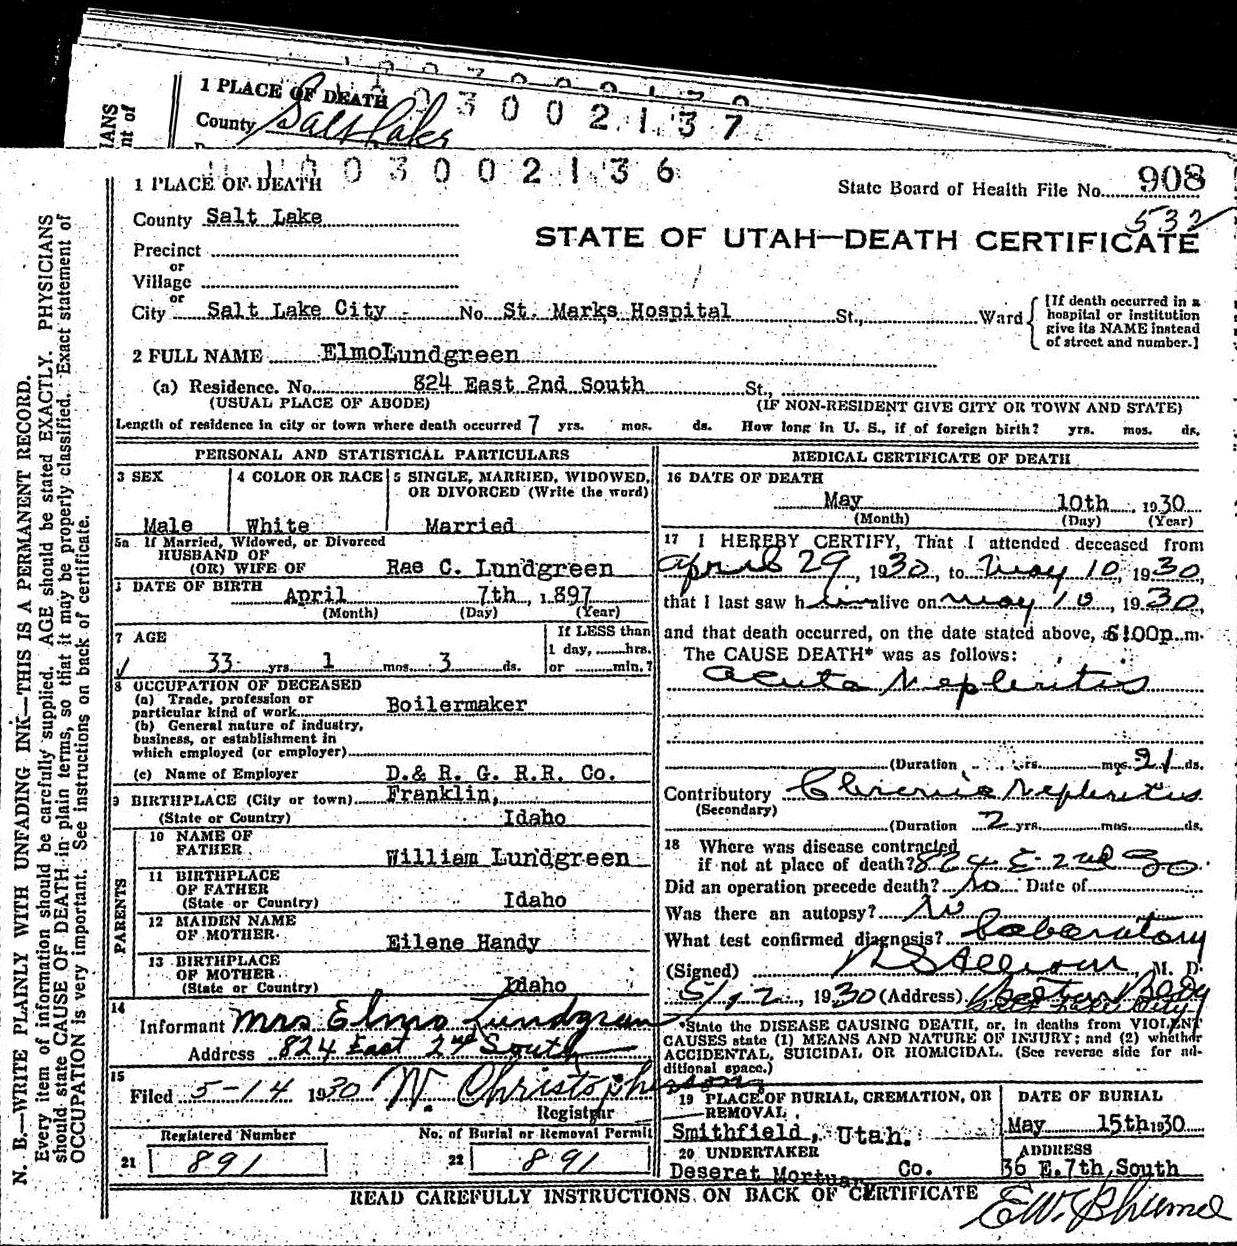 1 PLACE OF DEATH
3002137
County Salt Lake
IANS
nt of
003002136
1 PLACE OF DEATH
State Board of Health File No. 908
532
County Salt Lake
STATE OF UTAH—DEATH CERTIFICATE
Precinct
or
Village
or
City Salt Lake City No St. Marks Hospital St., Ward
[If death occurred in a
hospital or institution
give its NAME instead
of street and number.]
2 FULL NAME ElmoLundgreen
(a) Residence. No. 824 East 2nd South St.,
(USUAL PLACE OF ABODE) (IF NON-RESIDENT GIVE CITY OR TOWN AND STATE)
Length of residence in city or town where death occurred 7 yrs. mos. ds. How long in U. S., if of foreign birth? yrs. mos. ds.
PERSONAL AND STATISTICAL PARTICULARS
3 SEX
Male
4 COLOR OR RACE
White
5 SINGLE, MARRIED, WIDOWED,
OR DIVORCED (Write the word)
Married
5a If Married, Widowed, or Divorced
HUSBAND OF
(OR) WIFE OF Rae C. Lundgreen
DATE OF BIRTH
April 7th, 1897
(Month) (Day) (Year)
7 AGE
33 yrs 1 mos. 3 ds.
If LESS than
1 day, hrs.
or min.?
8 OCCUPATION OF DECEASED
(a) Trade, profession or
particular kind of work Boilermaker
(b) General nature of industry,
business, or establishment in
which employed (or employer)
(c) Name of Employer D.& R. G. R.R. Co.
9 BIRTHPLACE (City or town) Franklin,
(State or Country) Idaho
PARENTS
10 NAME OF
FATHER William Lundgreen
11 BIRTHPLACE
OF FATHER
(State or Country) Idaho
12 MAIDEN NAME
OF MOTHER Eilene Handy
13 BIRTHPLACE
OF MOTHER
(State or Country) Idaho
14
Informant Mrs Elmo Lundgreen
Address 824 East 2nd South
15
Filed 5-14 1930 W. Christopherson
Registrar
Registered Number
21 891
No. of Burial or Removal Permit
22 891
MEDICAL CERTIFICATE OF DEATH
16 DATE OF DEATH
May 10th, 1930
(Month) (Day) (Year)
17 I HEREBY CERTIFY, That I attended deceased from
April 29, 1930, to May 10, 1930
that I last saw him alive on May 10, 1930,
and that death occurred, on the date stated above, 6:00p m.
The CAUSE DEATH* was as follows:
Acute Nephritis
(Duration yrs. mos. 21 ds.
Contributory Chronic Nephritis
(Secondary)
(Duration 2 yrs. mos. ds.
18 Where was disease contracted
if not at place of death? 824 E- 2nd So.
Did an operation precede death? No Date of
Was there an autopsy? No
What test confirmed diagnosis? Laboratory
(Signed) M. D.
5/12, 1930 (Address)
Salt Lake City
*State the DISEASE CAUSING DEATH, or, in deaths from VIOLENT
CAUSES state (1) MEANS AND NATURE OF INJURY; and (2) whether
ACCIDENTAL, SUICIDAL OR HOMICIDAL. (See reverse side for ad-
ditional space.)
19 PLACE OF BURIAL, CREMATION, OR
REMOVAL
Smithfield, Utah.
DATE OF BURIAL
May 15th 1930
20 UNDERTAKER
Deseret Mortuary Co.
ADDRESS
36 E. 7th, South
READ CAREFULLY INSTRUCTIONS ON BACK OF CERTIFICATE
N. B.—WRITE PLAINLY WITH UNFADING INK—THIS IS A PERMANENT RECORD.
Every item of information should be carefully supplied. AGE should be stated EXACTLY. PHYSICIANS
should state CAUSE OF DEATH in plain terms, so that it may be properly classified. Exact statement of
OCCUPATION is very important. See instructions on back of certificate.